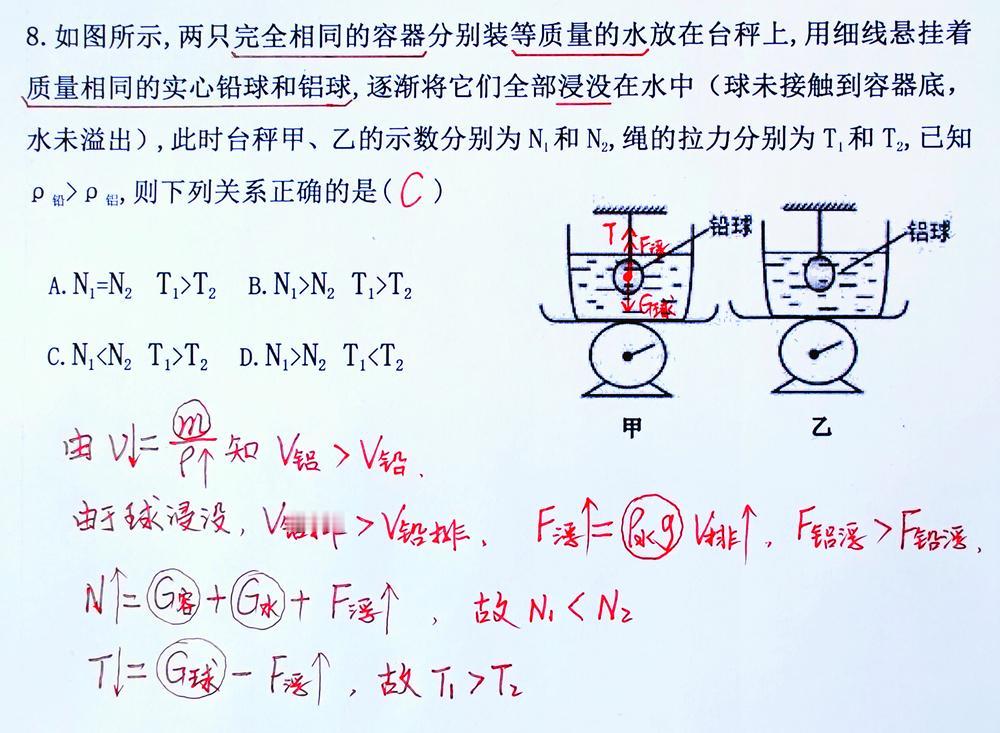 8.如图所示,两只完全相同的容器分别装等质量的水放在台秤上,用细线悬挂着
质量相同的实心铅球和铝球,逐渐将它们全部浸没在水中（球未接触到容器底,
水未溢出）,此时台秤甲、乙的示数分别为N₁和N₂,绳的拉力分别为T₁和T₂,已知
ρ铅>ρ铝,则下列关系正确的是( C )
A.N₁=N₂ T₁>T₂ B.N₁>N₂ T₁>T₂
C.N₁<N₂ T₁>T₂ D.N₁>N₂ T₁<T₂
T F浮 铅球
G球
铝球
甲 乙
由V↓=m/ρ↑知 V铝>V铅.
由于球浸没, V铝排>V铅排. F浮↑=ρ水g V排↑, F铝浮>F铅浮.
N↑=G容+G水+F浮↑, 故N₁<N₂
T↓=G球-F浮↑, 故T₁>T₂